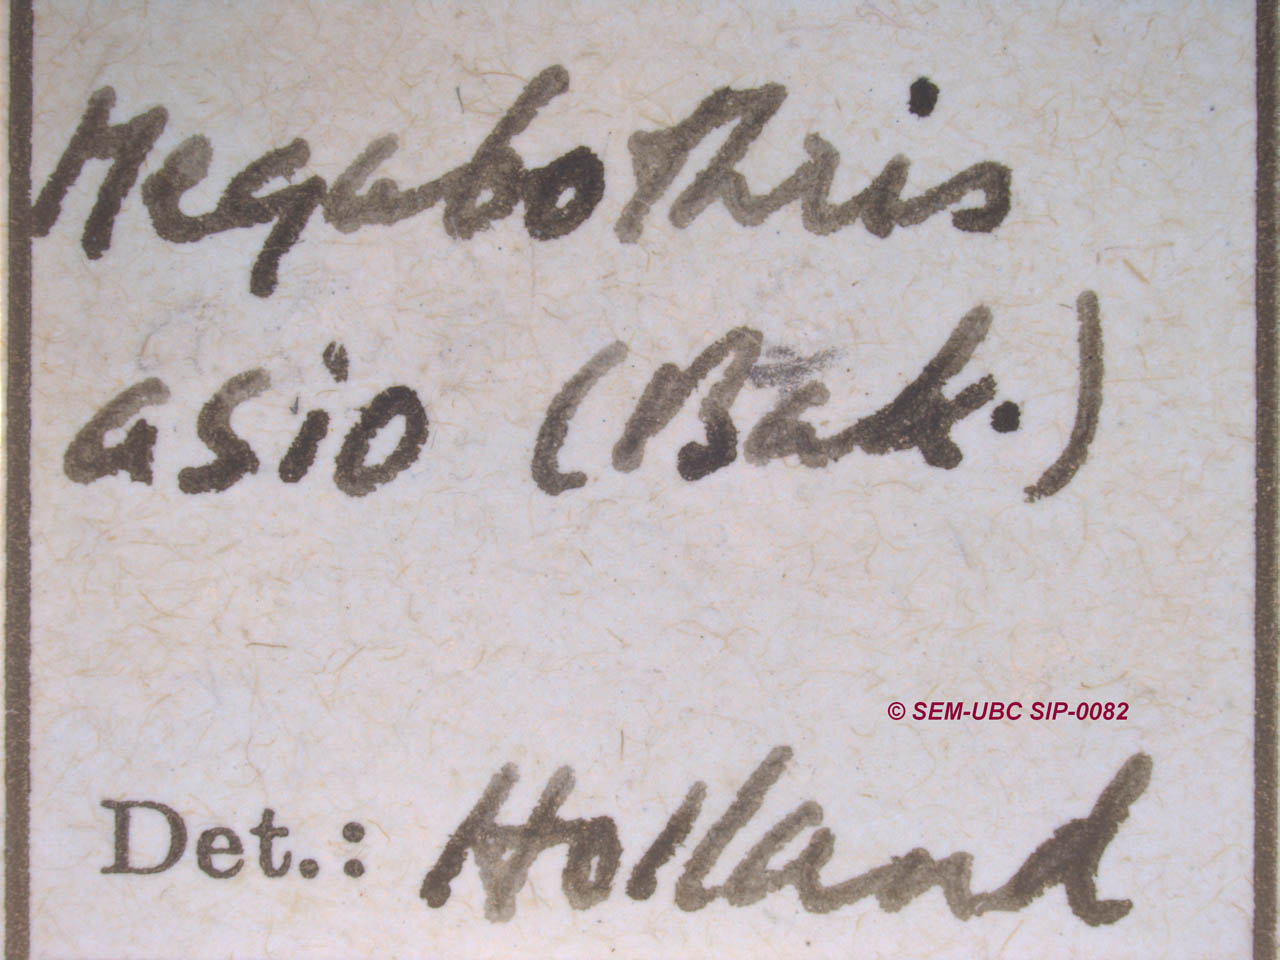 Megabothris
asio (Bak.)
© SEM-UBC SIP-0082
Det.: Holland